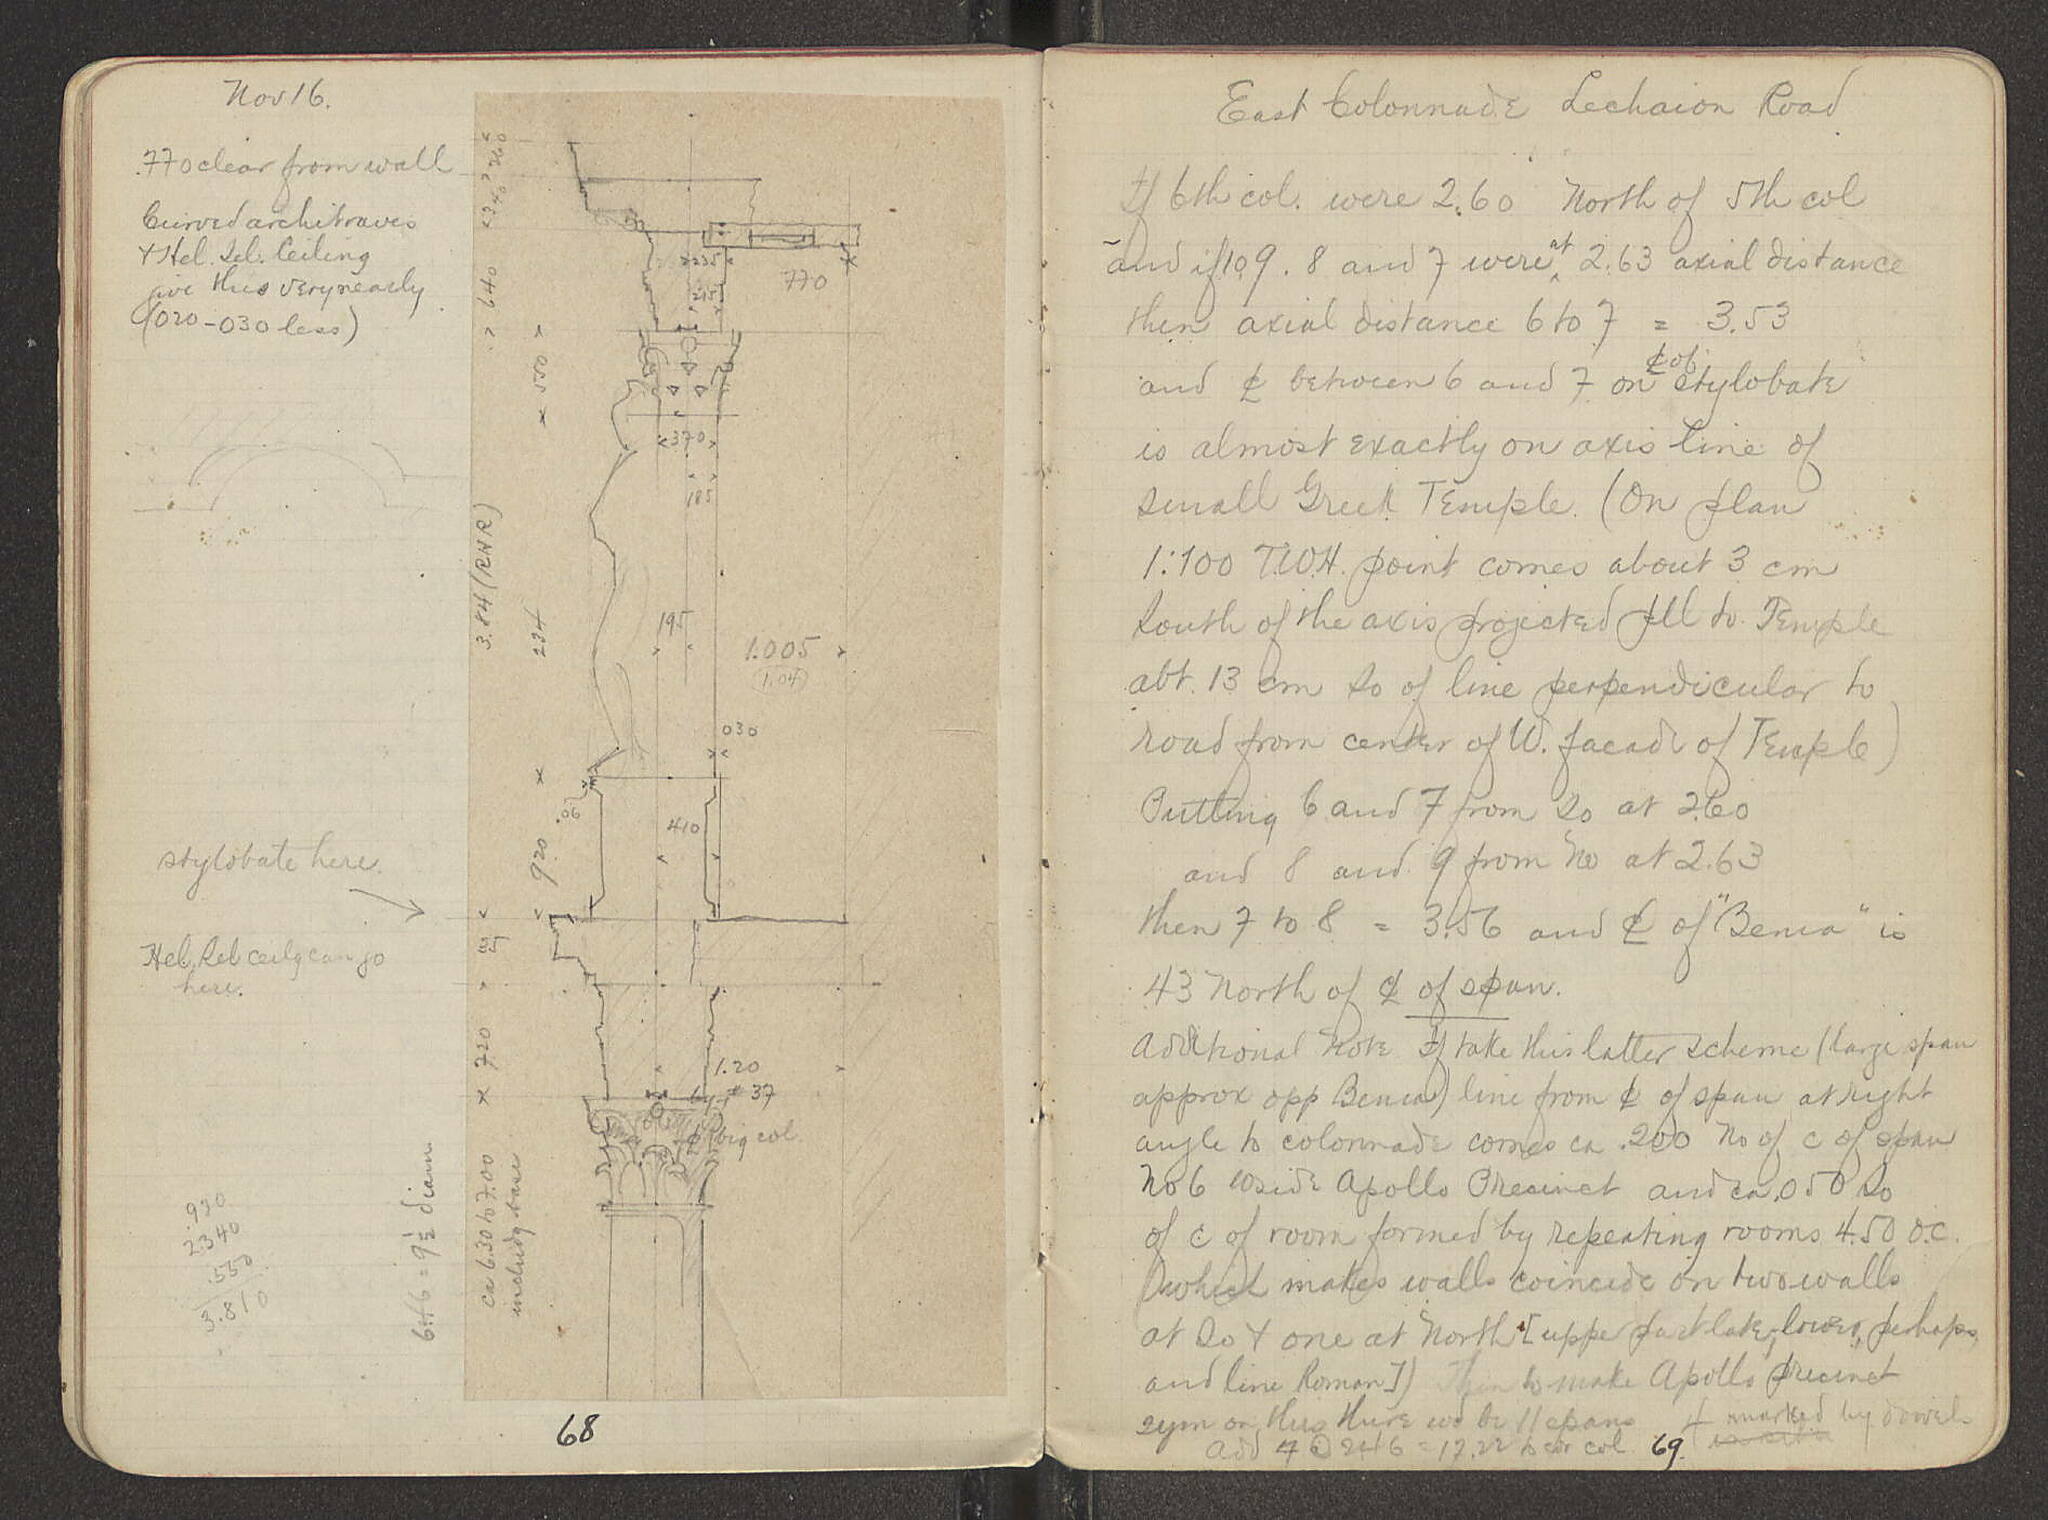 Nov 16.
.770 clear from wall
Curved architraves
+ Hel. Sel. Ceiling
give this very nearly
(020-030 less)
stylobate here.
Hel. Sel ceilg can go
here.
.920
2.340
.550
3.810
6.46 = 9½ diam
640
x 550 x
3.84 (RHR)
234
920
x 720
ca 6.30 to 7.00
includg base
235
770
215
370
185
195
1.005
(1.04)
030
.06
410
1.20
# 37
¢ big col.
68
East Colonnade Lechaion Road
If 6th col. were 2.60 North of 5th col
and if 10, 9. 8 and 7 were at 2.63 axial distance
then axial distance 6 to 7 = 3.53
and ¢ between 6 and 7 on ¢ of stylobate
is almost exactly on axis line of
small Greek Temple. (On plan
1:100 T.W.H. point comes about 3 cm
South of the axis projected pll to Temple
abt. 13 cm So of line perpendicular to
road from center of W. facade of Temple)
Putting 6 and 7 from So at 2.60
and 8 and 9 from No at 2.63
then 7 to 8 = 3.56 and ¢ of "Bema" is
43 North of ¢ of span.
Additional Note If take this latter scheme (large span
approx opp Bema) line from ¢ of span at right
angle to colonnade comes ca .200 No of c of span
No 6 inside Apollo Precinct and ca .050 So
of c of room formed by repeating rooms 4.50 o.c.
(which makes walls coincide on two walls
at So + one at North [upper part late, lower, perhaps,
and line Roman]) Then to make Apollo precinct
sym on this there wd be 11 spans
marked by dowel
Add 7 @ 246 = 17.22 to cor col
69.